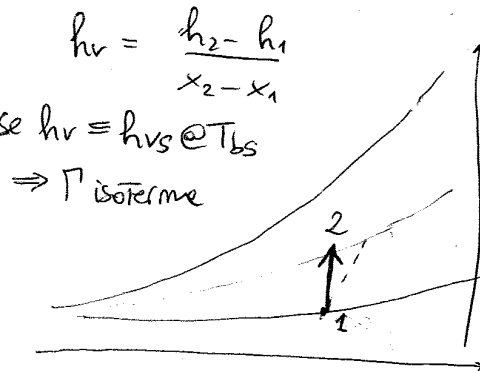 hv = h2 - h1
x2 - x1
se hv ≡ hvs @ Tbs
⇒ Γ isoterme
2
1